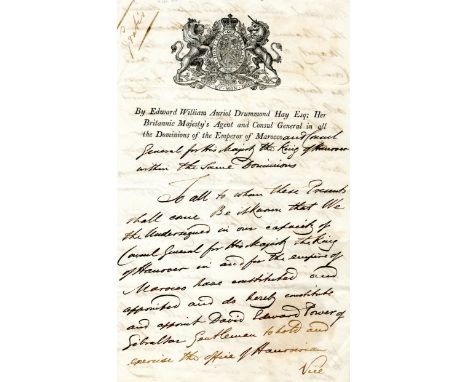 Gratis
By Edward William Auriol Drummond Hay Esq; Her
Britannic Majesty's Agent and Consul General in all
the Dominions of the Emperor of Marocco and Consul
General for His Majesty the King of Hanover
within the Same Dominions
To all to whom these Presents
shall come Be it known that We
the Undersigned in our capacity of
Consul General for His Majesty the King
of Hanover in and for the empire of
Marocco have constituted and
appointed and do hereby constitute
and appoint David Edward Power of
Gibraltar Gentleman to hold and
exercise the office of Hanoverian
Vice